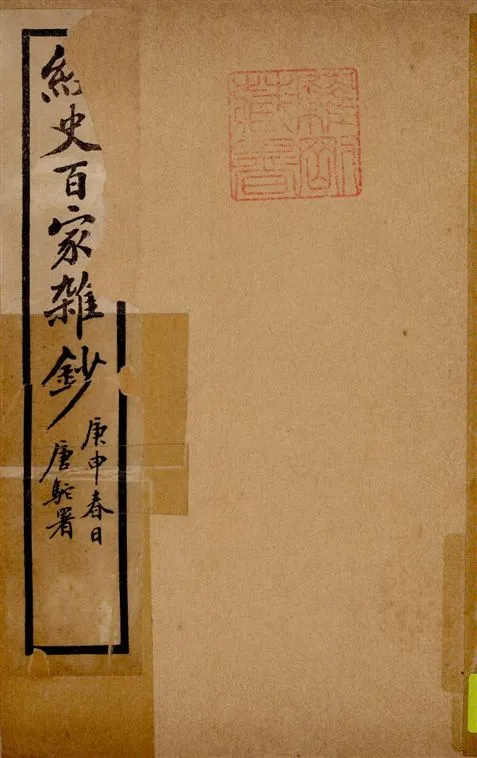 藏書
經史百家雜鈔
庚申春日
唐駝署